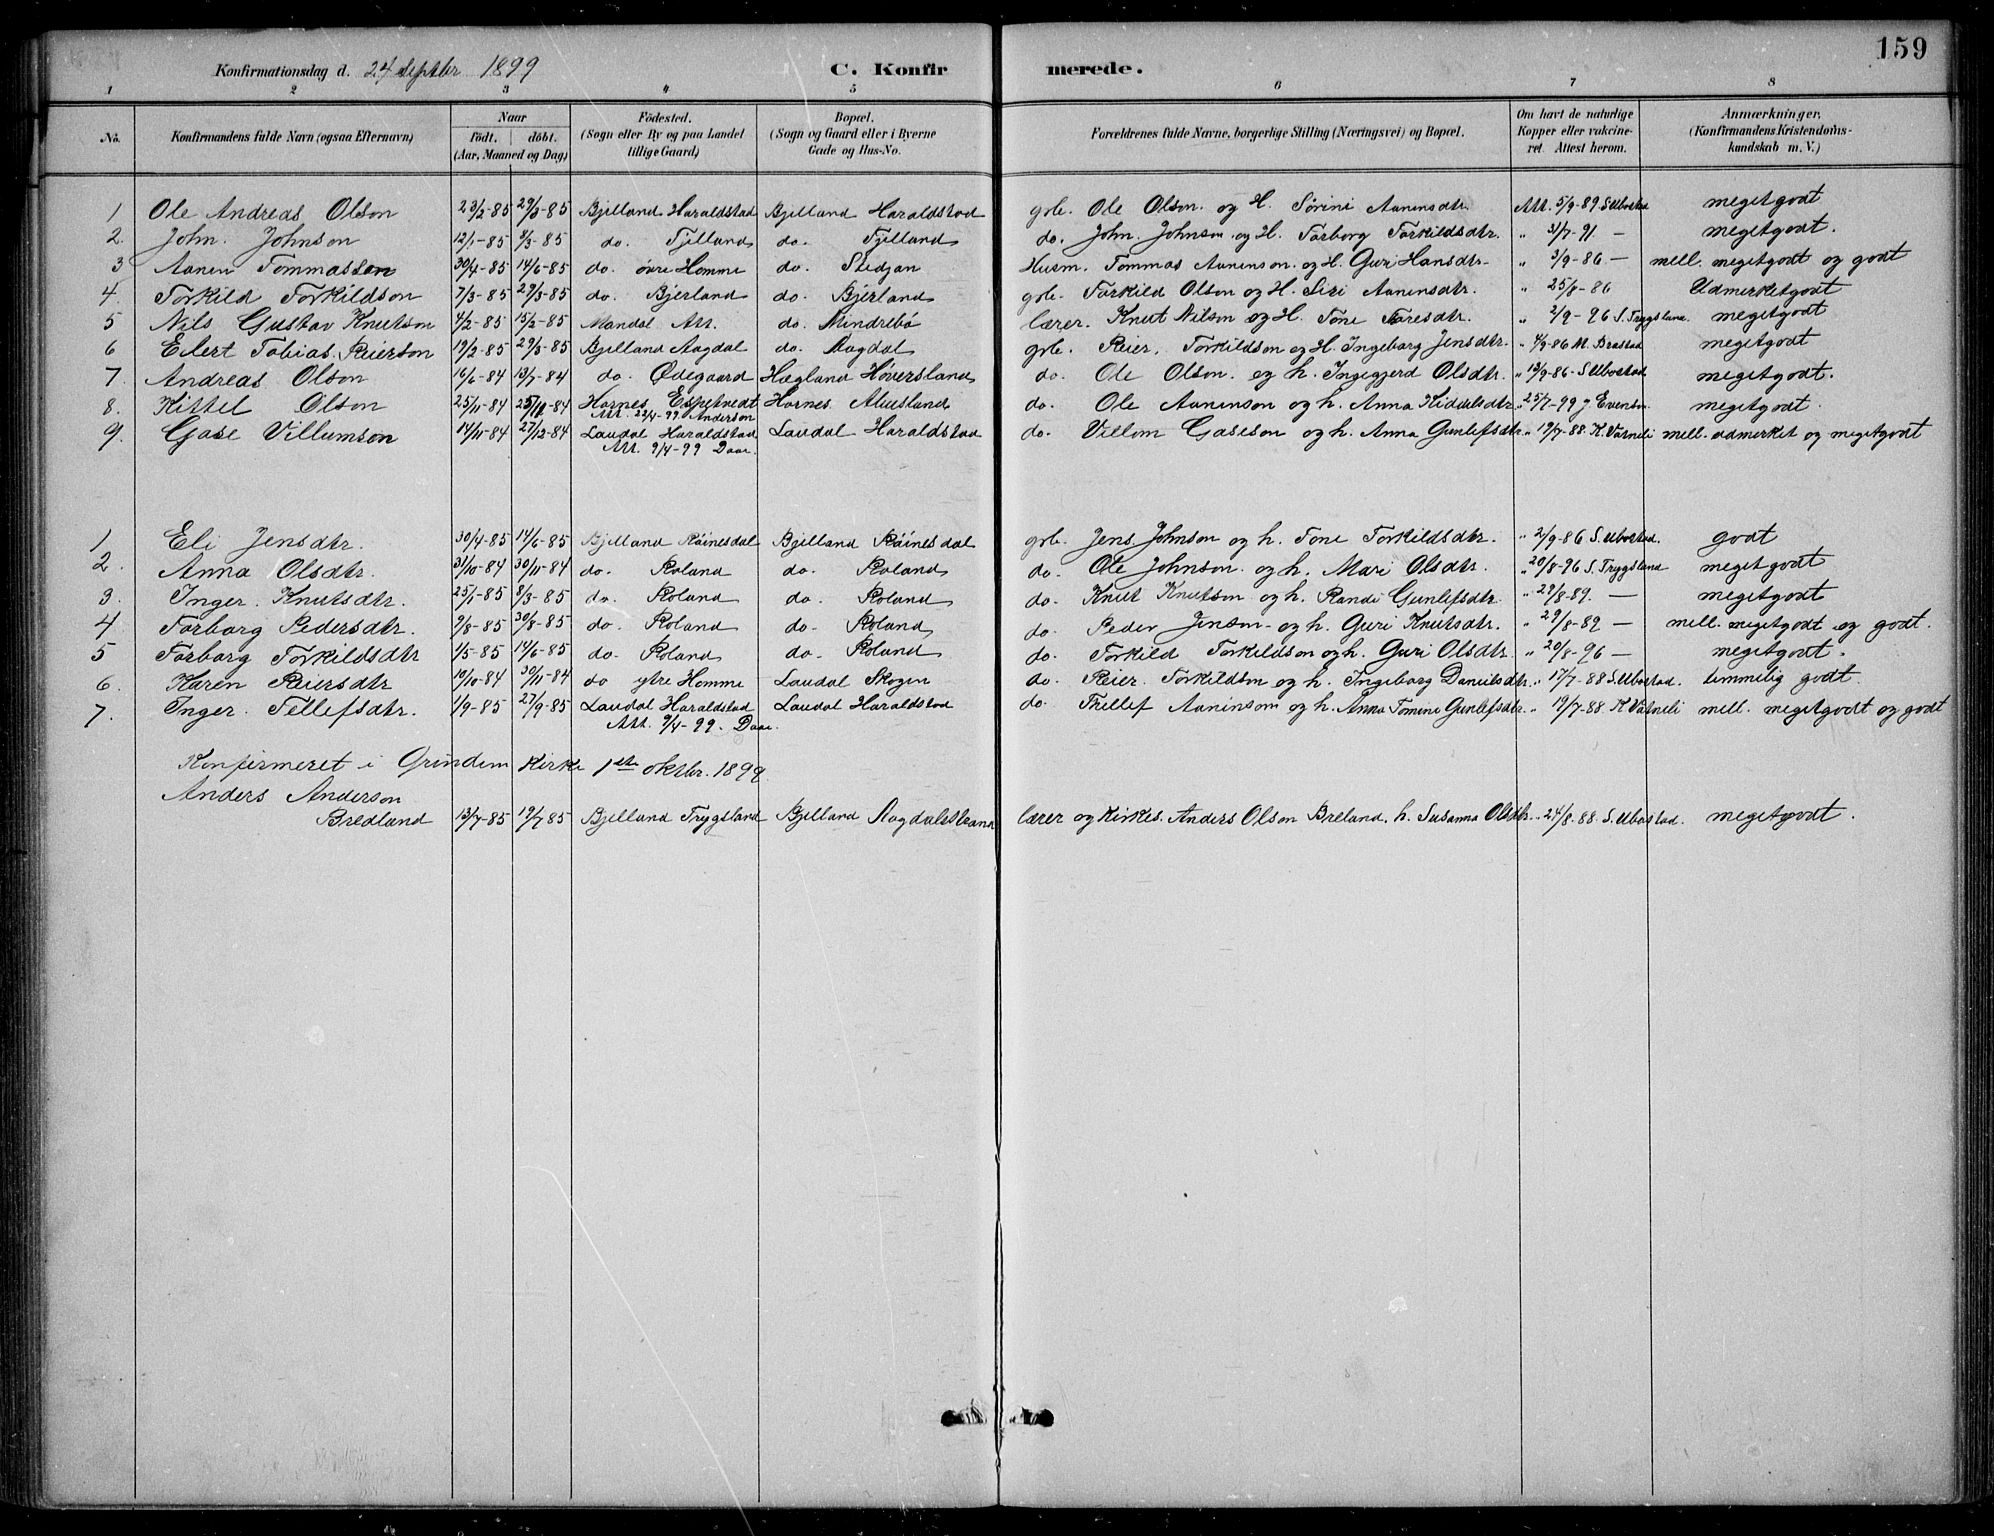 159
Konfirmationsdag d. 24 Septbr 1899 C. Konfirmerede.
1 2 3 4 5 6 7 8
No. Konfirmandens fulde Navn (ogsaa Efternavn) Naar Födt. döbt. (Aar, Maaned og Dag) Födested. (Sogn eller By og paa Landet tillige Gaard) Bopæl. (Sogn og Gaard eller i Byerne Gade og Hus-No. Forældrenes fulde Navne, borgerlige Stilling (Næringsvei) og Bopæl. Om havt de naturlige Kopper eller vakcineret. Attest herom. Anmærkninger. (Konfirmandens Kristendomskundskab m. V.)
1 Ole Andreas Olson 23/2-85 29/3-85 Bjelland Haraldstad Bjelland Haraldstad gbr. Ole Olson og H. Sørine Aanensdtr. Att. 5/9-89 S Ubostad megetgodt
2. John Johnson 12/1-85 8/3-85 do. Fjelland do. Fjelland do. John Johnson og H. Torborg Torkildsdtr. " 3/7-91 — megetgodt.
3 Aanen Tommasson 30/4-85 14/6-85 do. øvre Homme do. Stedjan Husm. Tommas Aanenson og H. Guri Hansdtr. " 3/9-86 — mell. megetgodt og godt
4. Torkild Torkildson 7/3-85 29/3-85 do. Bjerland do. Bjerland gbr. Torkild Olson og H. Siri Aanensdtr. " 25/8-86 Udmerketgodt
5 Nils Gustav Knutson 4/2-85 15/2-85 Mandal Att. do. Mindrebø lærer. Knut Nilson og H. Tone Toresdtr. " 2/9-96 S. Trygsland megetgodt
6 Eilert Tobias Reierson 19/2-85 29/3-85 Bjelland Aagdal do. Aagdal gbr. Reier Torkildson og H. Ingeborg Jensdtr. " 4/9-86 M. Brastad megetgodt
7. Andreas Olson 16/6-84 13/7-84 do. Ødegaard Hægland Høversland do. Ole Olson og h. Ingegjerd Olsdtr. " 13/9-86 S Ubostad megetgodt.
8. Kittel Olson 25/11-84 25/12-84 Hornes Espetvedt Hornes Aluesland do. Ole Aanenson og h. Anna Kiddelsdtr. " 25/7-99 J Evenson megetgodt.
Att. 22/4-99 Anderson
9. Gase Villumson 14/11-84 27/12-84 Laudal Haraldstad Laudal Haraldstad do. Villom Gaseson og h. Anna Gunlefsdtr. " 19/7-88 K. Vatneli mell. udmerket og megetgodt
Att. 9/4-99 Daae.
1 Eli Jensdtr. 30/4-85 14/6-85 Bjelland Röinesdal Bjelland Röinesdal gbr. Jens Johnson og h. Tone Torkildsdtr. " 2/9-86 S. Ubostad. godt
2. Anna Olsdtr. 31/10-84 30/11-84 do. Roland do. Roland do. Ole Johnson og h. Mari Olsdtr. " 20/8-96 S. Trygsland megetgodt
3. Inger Knutsdtr. 25/1-85 8/3-85 do. Roland do. Roland do. Knut Knutson og h. Randi Gunlefsdtr. " 29/8-89. — megetgodt
4 Torborg Pedersdtr. 9/8-85 30/8-85 do. Roland do. Roland do. Peder Jenson og h. Guri Knutsdtr. " 29/8-89 — mell. megetgodt og godt.
5 Torborg Torkildsdtr 1/5-85 14/6-85 do. Roland do. Roland do. Torkild Torkildson og h. Guri Olsdtr. " 20/8-96 — megetgodt.
6. Karen Reiersdtr 10/10-84 30/11-84 do ytre Homme Laudal Skogen do. Reier Torkildson og h. Ingeborg Danielsdtr. " 17/7-88 S Ubostad. temmelig godt.
7. Inger Tellefsdtr. 1/9-85 27/9-85 Laudal Haraldstad Laudal Haraldstad do. Thellef Aanenson og h. Anna Tomine Gunlefsdtr. " 19/7-88 K Vatneli mell. megetgodt og godt
Att. 9/4-99. Daae.
Konfirmeret i Grindem Kirke 1ste oktbr. 1899
Anders Anderson
Bredland 13/7-85 19/7 85 Bjelland Trygsland Bjelland Aagdalsstrand lærer og Kirkes. Anders Olson Breland, h. Susanna Olsdtr. " 24/8-88 S. Ubostad. megetgodt.